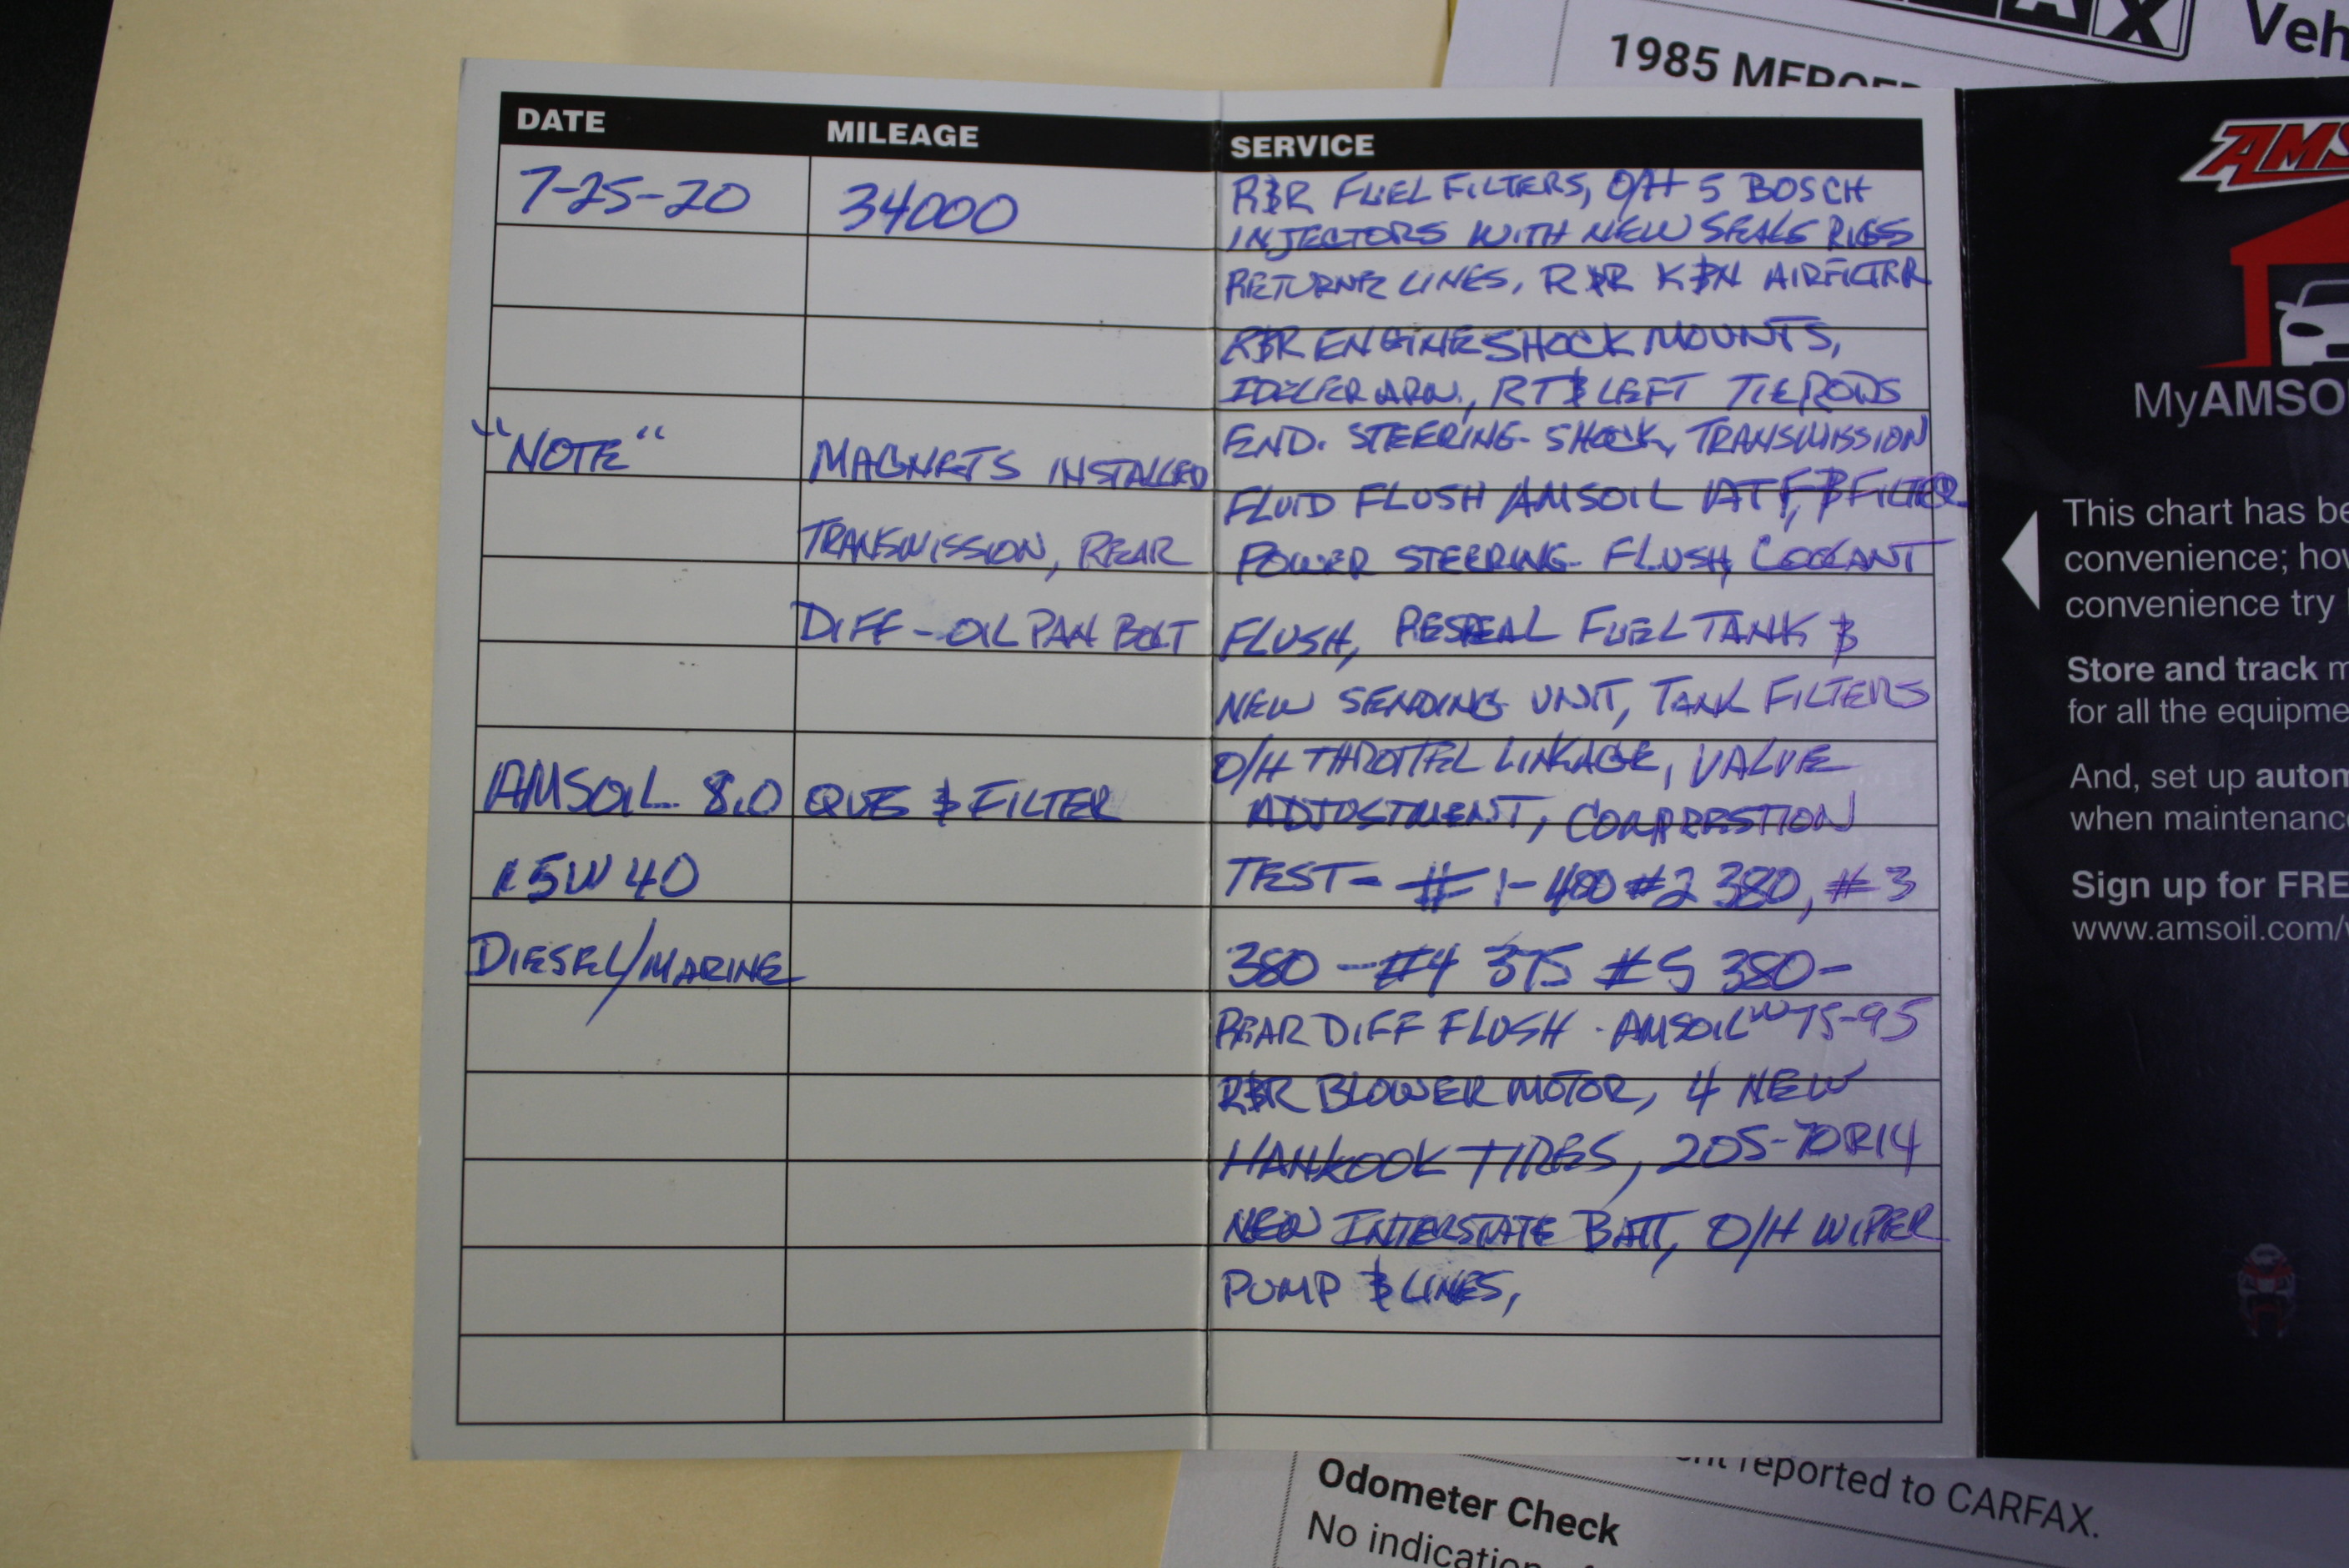 1985 MERCED
Veh
DATE MILEAGE SERVICE
7-25-20 34000 R&R FUEL FILTERS, O/H 5 BOSCH
INJECTORS WITH NEW SEALS
RETURNE LINES, R&R K&N AIRFILTER
R&R ENGINE SHOCK MOUNTS,
IDLER ARM, RT & LEFT TIE RODS
"NOTE" MAGNETS INSTALLED END. STEERING SHOCK, TRANSMISSION
FLUID FLUSH AMSOIL ATF, & FILTER
TRANSMISSION, REAR POWER STEERING FLUSH, COOLANT
DIFF - OIL PAN BOLT FLUSH, RESEAL FUEL TANK &
NEW SENDING UNIT, TANK FILTERS
O/H THROTTEL LINKAGE, VALVE
AMSOIL 8.0 QUES & FILTER ADJUSTMENT, COMPRESTION
15W40 TEST - # 1-400 #2 380, #3
DIESEL/MARINE 380 - #4 375 #5 380-
REAR DIFF FLUSH - AMSOIL W 75-95
R&R BLOWER MOTOR, 4 NEW
HANKOOK TIRES, 205-70R14
NEW INTERSTATE BATT, O/H WIPER
PUMP & LINES,
AMS
MyAMSO
This chart has be
convenience; how
convenience try
Store and track m
for all the equipme
And, set up autom
when maintenanc
Sign up for FRE
www.amsoil.com/
reported to CARFAX.
Odometer Check
No indication